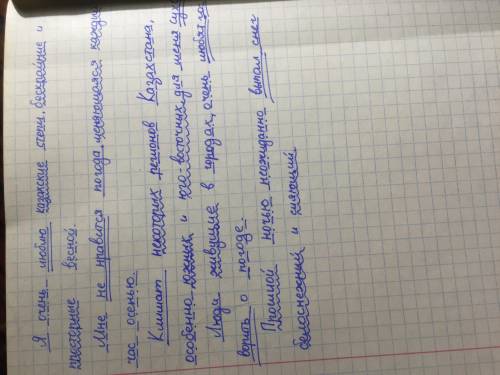 Я очень люблю казахские степи, бескрайние и
пустынные весной.
Мне не нравится погода, меняющаяся каждый
час осенью.
Климат некоторых регионов Казахстана,
особенно южных и юго-восточных, для меня сух
Люди живущие в городах, очень любят го
ворить о погоде.
Прошлой ночью неожиданно выпал снег
белоснежный и сияющий.